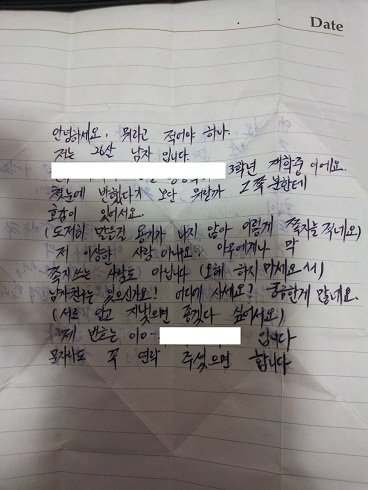 Date
안녕하세요. 뭐라고 적어야 하나.
저는 26살 남자 입니다
3학년 재학중 이에요.
첫눈에 반했다기 보단 뭐랄까 그쪽 분한테
호감이 있어서요.
(도저히 말 용기가 나지 않아 이렇게 쪽지를 적네요)
저 이상한 사람 아녜요! 아무에게나 막
쪽지쓰는 사람도 아닙니다 (오해 하지 마세요ㅠ)
남자친구는 있으신가요! 어디에 사세요! 궁금한게 많네요.
(서로 알고 지냈으면 좋겠다 싶어서요)
제 번호는 010- 입니다
문자라도 꼭 연락 주셨으면 합니다